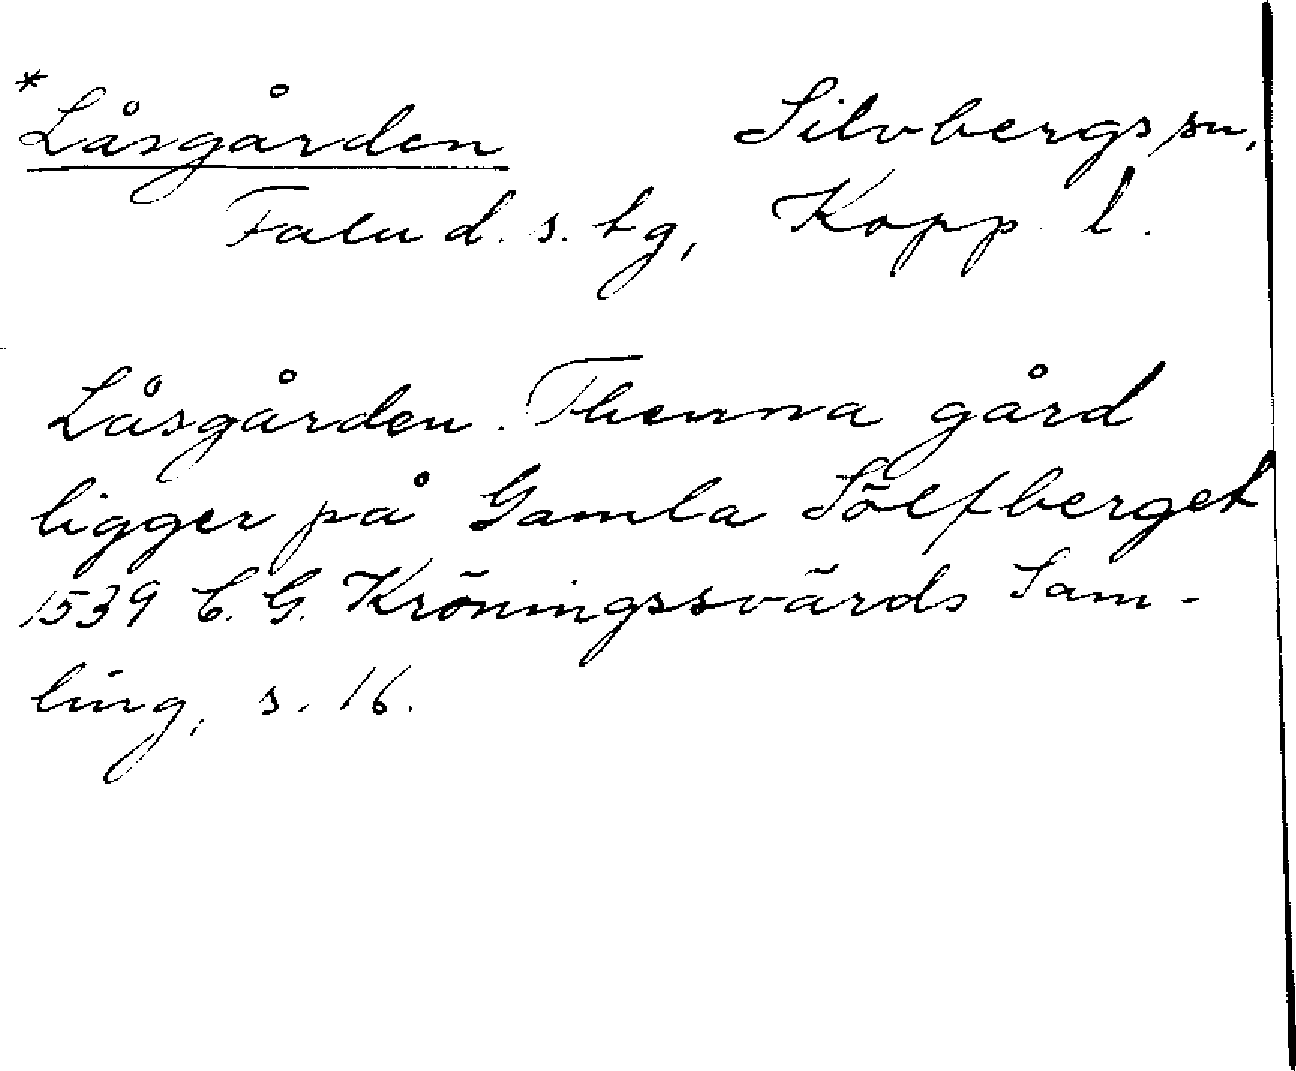 *Låsgården Silvbergs sn,
Falu d. s. tg, Kopp. l.
Låsgården. Thenna gård
ligger på Gamla Sölfberget
1539 C. G. Kröningssvärds Sam-
ling, s. 16.